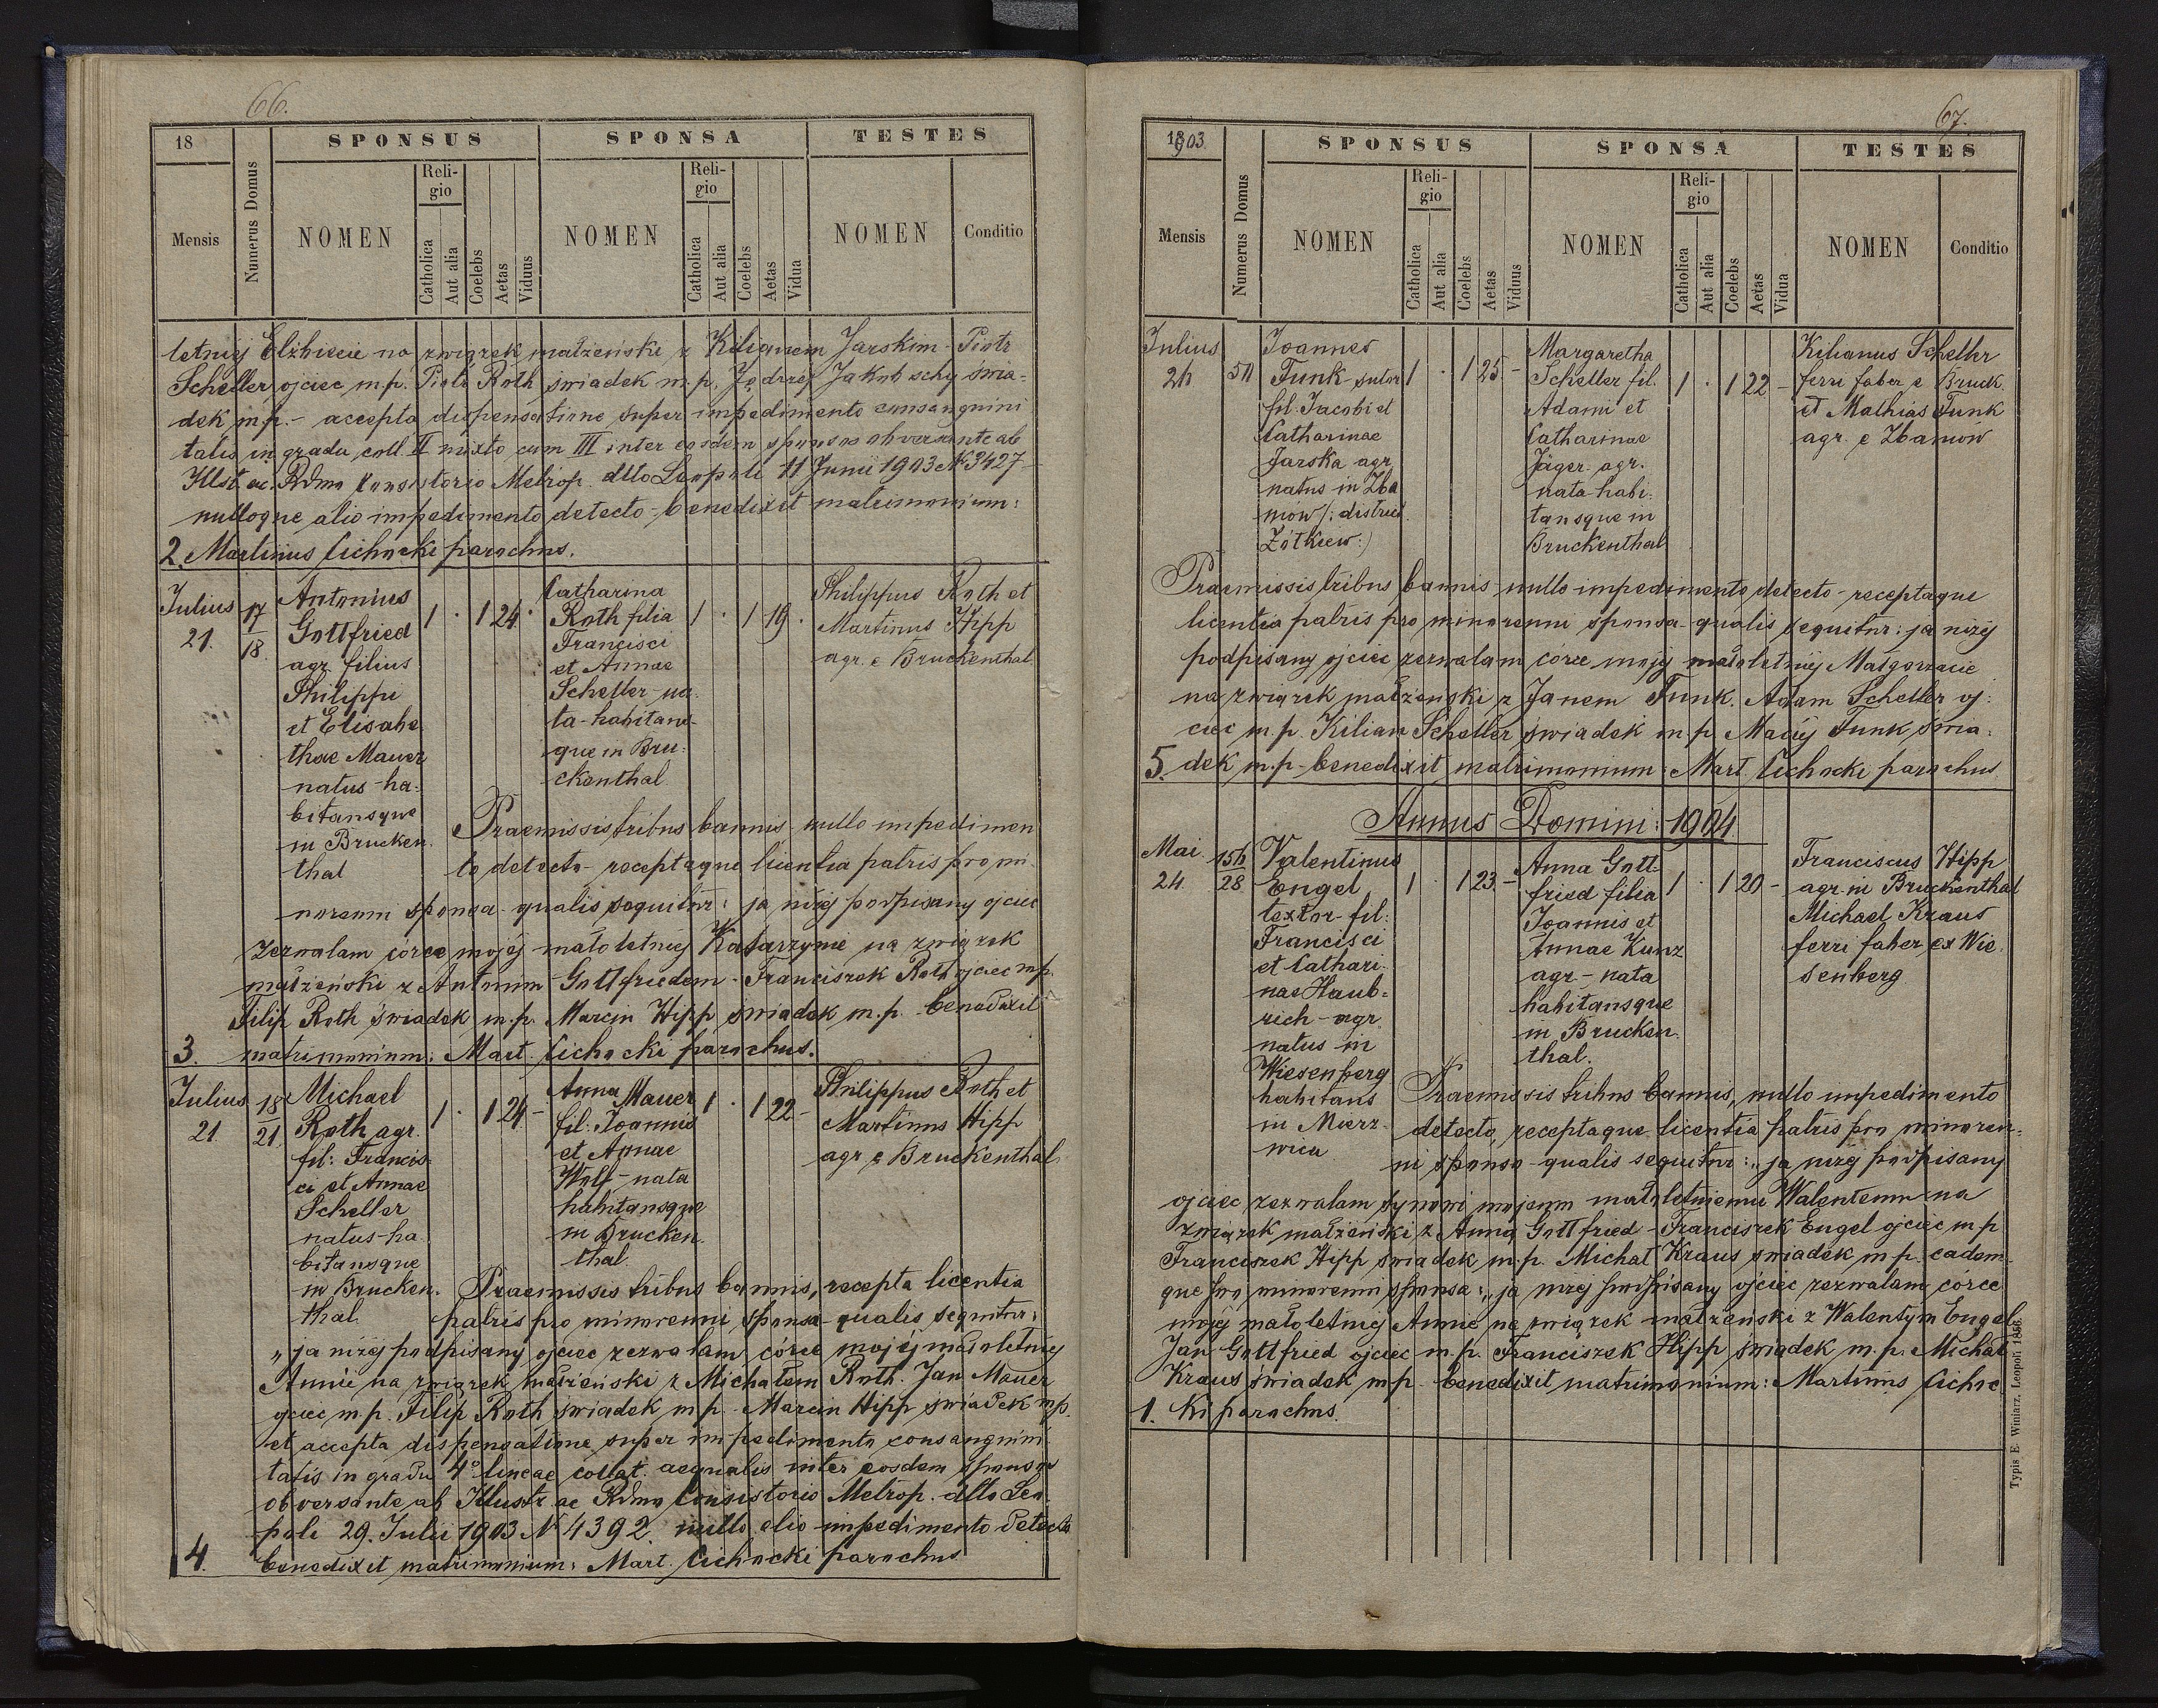 66.
18
SPONSUS
SPONSA
TESTES
Mensis
Numerus Domus
NOMEN
Reli-
gio
Catholica
Aut alia
Coelebs
Aetas
Viduus
NOMEN
Reli-
gio
Catholica
Aut alia
Coelebs
Aetas
Vidua
NOMEN
Conditio
letniej Elżbiecie na związek małżeński z Kilianem Jarskim - Piotr
Scheller ojciec m.p. Piotr Roth świadek m.p. Jędrzej Jakob schy świa-
dek m.p. - accepta dispensatione super impedimento consanguini
tatis in gradu coll. II mixto cum III inter eosdem sponsos obversante ab
Illst. ac. Rdmo Consistorio Metrop. dtto Leopoli 11 Junii 1903 N 3427 -
nulloque alio impedimento detecto - benedixit matrimonium:
2. Martinus Cichocki parochus.
Julius
21.
17
18.
Antonius
Gottfried
agr. filius
Philippi
et Elisabe
thae Mauer
natus - ha-
bitansque
in Brucken.
thal
1 . 1 24 .
Catharina
Roth filia
Francisci
et Annae
Scheller - na
ta - habitans-
que in Bru-
ckenthal
1 . 1 19 .
Philippus Roth et
Martinus Hipp
agr. e Bruckenthal
Praemissis tribus bannis nullo impedimen
to detecto - receptaque licentia patris pro mi
norenni sponsa - qualis sequitur: ja niżej podpisany ojciec
zezwalam córce mojéj małoletniej Katarzynie na związek
małżeński z Antonim Gottfriedem - Franciszek Roth ojciec mp.
Filip Roth świadek m.p. Marcin Hipp świadek m.p. benedixit
3. matrimonium: Mart. Cichocki parochus.
Julius
21
18
21
Michael
Roth agr.
fil: Francis-
ci et Annae
Scheller
natus - ha
bitansque
in Brucken.
thal.
1 . 1 24 -
Anna Mauer
fil: Joannis
et Annae
Wolf - nata
habitansque
in Brucken.
thal
1 . 1 22 -
Philippus Roth et
Martinus Hipp
agr e Bruckenthal
Praemissis tribus bannis, recepta licentia
patris pro minorenni sponsa - qualis sequitur:
„ja niżej podpisany ojciec zezwalam córce mojéj małoletniej
Annie na związek małżeński z Michałem Roth. Jan Mauer
ojciec m.p. Filip Roth świadek m.p. - Marcin Hipp świadek mp.
et accepta dispensatione super impedimento consanguini
tatis in gradu 4° lineae collat. aequalis inter eosdem sponsos
obversante ab Illustr. ac Rdmo Consistorio Metrop. dtto Leo
poli 29. Julii 1903 N 4392. nullo alio impedimento detecto
4. benedixit matrimonium: Mart. Cichocki parochus
67.
1903
SPONSUS
SPONSA
TESTES
Mensis
Numerus Domus
NOMEN
Reli-
gio
Catholica
Aut alia
Coelebs
Aetas
Viduus
NOMEN
Reli-
gio
Catholica
Aut alia
Coelebs
Aetas
Vidua
NOMEN
Conditio
Julius
Joannes
Funk sutor
fil. Jacobi et
Catharinae
Jarska agr.
natus in Zba
niów /: district.
Żółkiew:)
1 . 1 25 -
Margaretha
Scheller fil.
Adami et
Catharinae
Jäger - agr.
nata - habi-
tansque in
Bruckenthal
1 . 1 22 -
Kilianus Scheller
ferri faber e Bruck.
et Mathias Funk
agr. e Zbaniów
Praemissis tribus bannis - nullo impedimento detecto - receptaque
licentia patris pro minorenni sponsa - qualis sequitur: ja niżej
podpisany ojciec zezwalam córce mojéj małoletniéj Małgorzacie
na związek małżeński z Janem Funk. Adam Scheller oj-
ciec m.p. Kilian Scheller świadek m.p. Maciéj Funk świa-
5. dek m.p. benedixit matrimonium: Mart. Cichocki parochus
Annus Domini: 1904.
Mai.
24.
28.
Valentinus
Engel
textor - fil:
Francisci
et Cathari-
nae Haub-
rich - agr.
natus in
Wiesenberg
habitans
in Mierz
wica
1 . 1 23. -
Anna Gott-
fried filia
Joannis et
Annae Kunz
agr - nata
habitansque
in Brucken.
thal.
1 . 1 20 -
Franciscus Hipp
agr. in Bruckenthal
Michael Kraus
ferri faber ex Wie.
senberg
Praemissis tribus bannis, nullo impedimento
detecto, receptaque licentia patris pro minoren-
ni sponso - qualis sequitur: „ja niżéj podpisany
ojciec zezwalam synowi mojemu małoletniemu Walentemu na
związek małżeński z Anną Gottfried - Franciszek Engel ojciec m p
Franciszek Hipp świadek m.p. Michał Kraus świadek m.p. eadem-
que pro minorenni sponsa: „ja niżej podpisany ojciec zezwalam córce
mojéj małoletniéj Annie na związek małżeński z Walentym Engel.
Jan Gottfried ojciec m.p. Franciszek Hipp świadek m.p. Michał
Kraus świadek mp. benedixit matrimonium: Martinus Cichoc
1. ki parochus.
Typis E. Winiarz. Leopoli 1866.